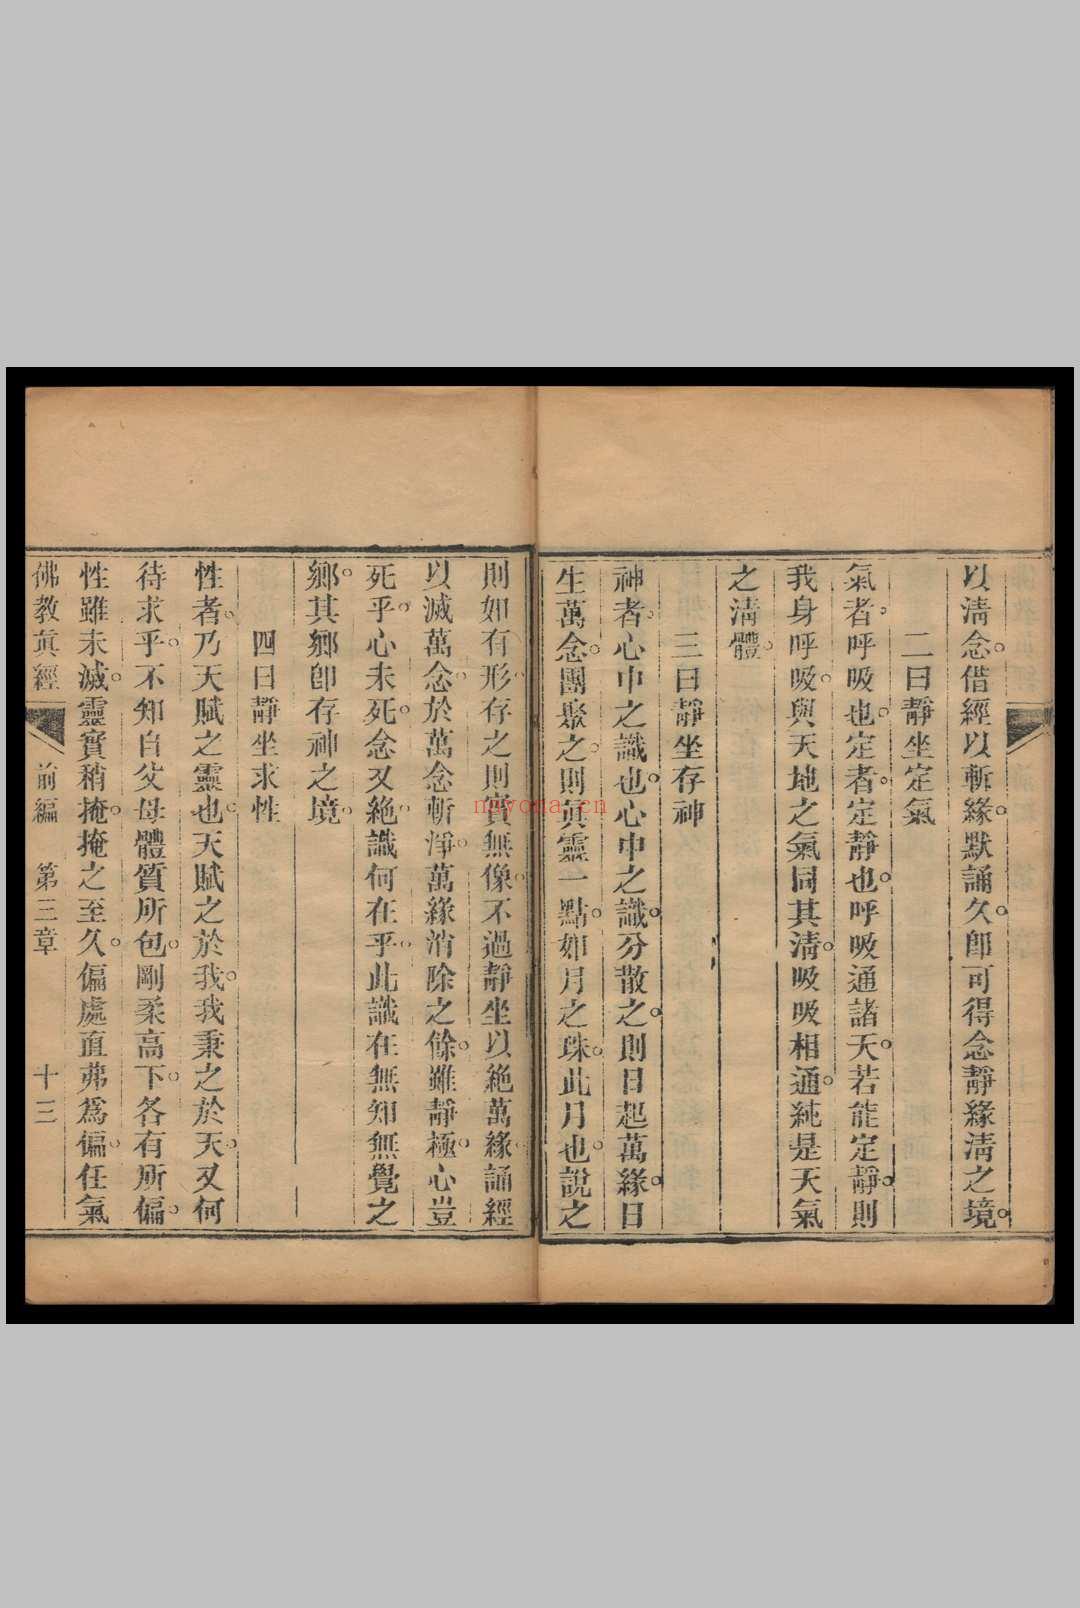 以淸念借經以斬緣默誦久卽可得念靜緣淸之境
二曰靜坐定氣
氣者呼吸也定者定靜也呼吸通諸天若能定靜則
我身呼吸與天地之氣同其淸吸吸相通純是天氣
之淸體
三曰靜坐存神
神者心中之識也心中之識分散之則日起萬緣日
生萬念團聚之則眞靈一點如月之珠此月也說之
則如有形存之則實無像不過靜坐以絶萬緣誦經
以滅萬念於萬念斬淨萬緣消除之餘雖靜極心豈
死乎心未死念又絶識何在乎此識在無知無覺之
鄉其鄉卽存神之境
四曰靜坐求性
性者乃天賦之靈也天賦之於我我秉之於天又何
待求乎不知自父母體質所包剛柔高下各有所偏
性雖未滅靈實稍掩掩之至久偏處直弗爲偏任氣
佛教眞經 前編 第三章 十三
nayona.cn